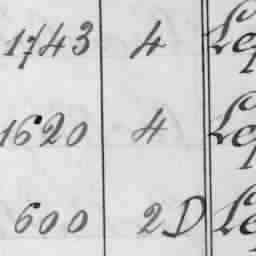 1743 4 Le
1620 4 Le
600 2D Le